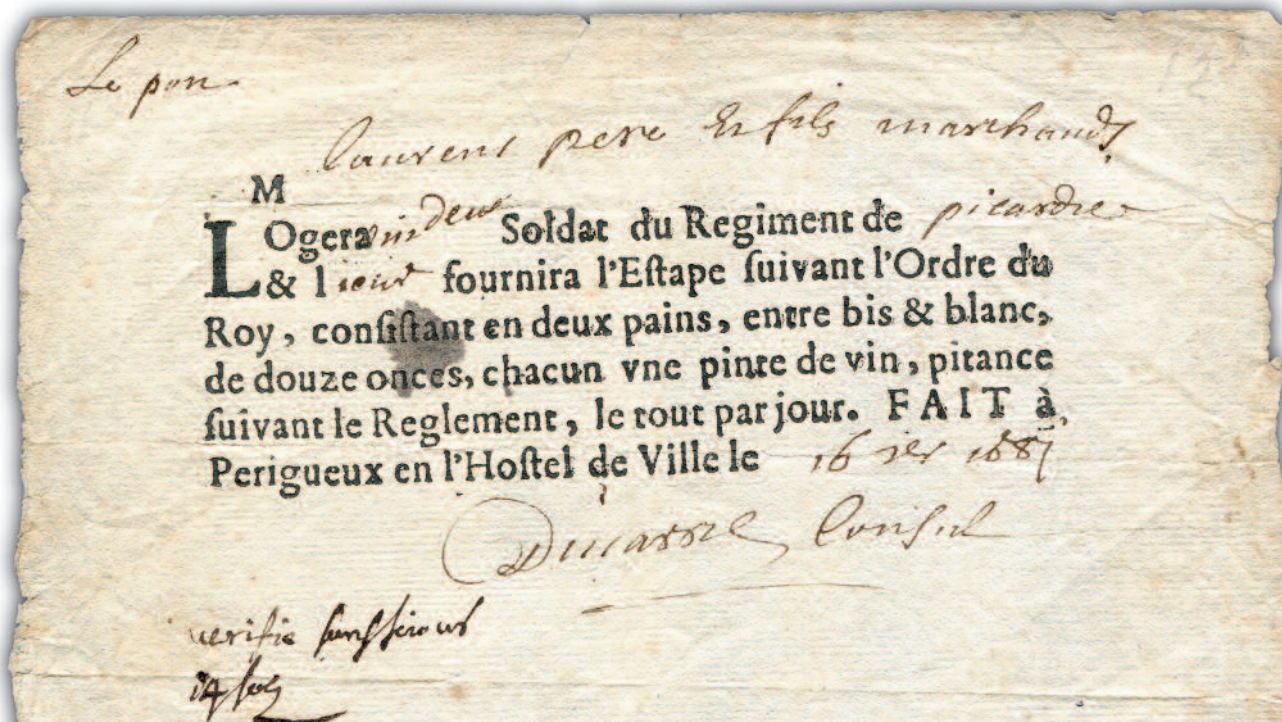 Le pon
Laurens pere et fils marchands
M
LOgera deux Soldat du Regiment de picardie
& l fournira l'Eſtape ſuivant l'Ordre du
Roy, conſiſtant en deux pains, entre bis & blanc,
de douze onces, chacun vne pinte de vin, pitance
ſuivant le Reglement, le tout par jour. FAIT à
Perigueux en l'Hoſtel de Ville le 16
Consul
verifie
14